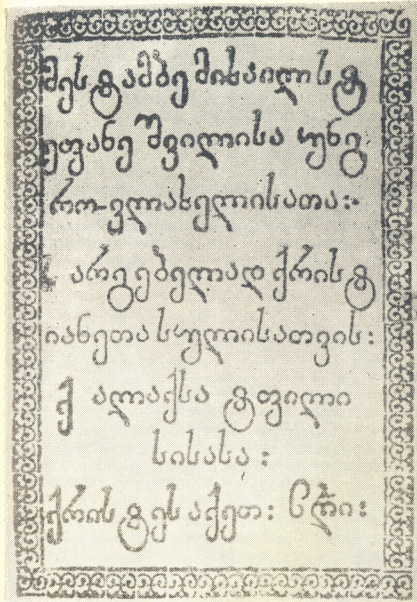 მესტამბე მიხაილ სტ
ეფანეშვილისა უნგ
რო-ვლახელისათა:
სარგებელად ქრისტ
იანეთა სულისათვის:
ქალაქსა ტფილი
სისასა:
ქრისტეს აქეთ: ჩღთ: